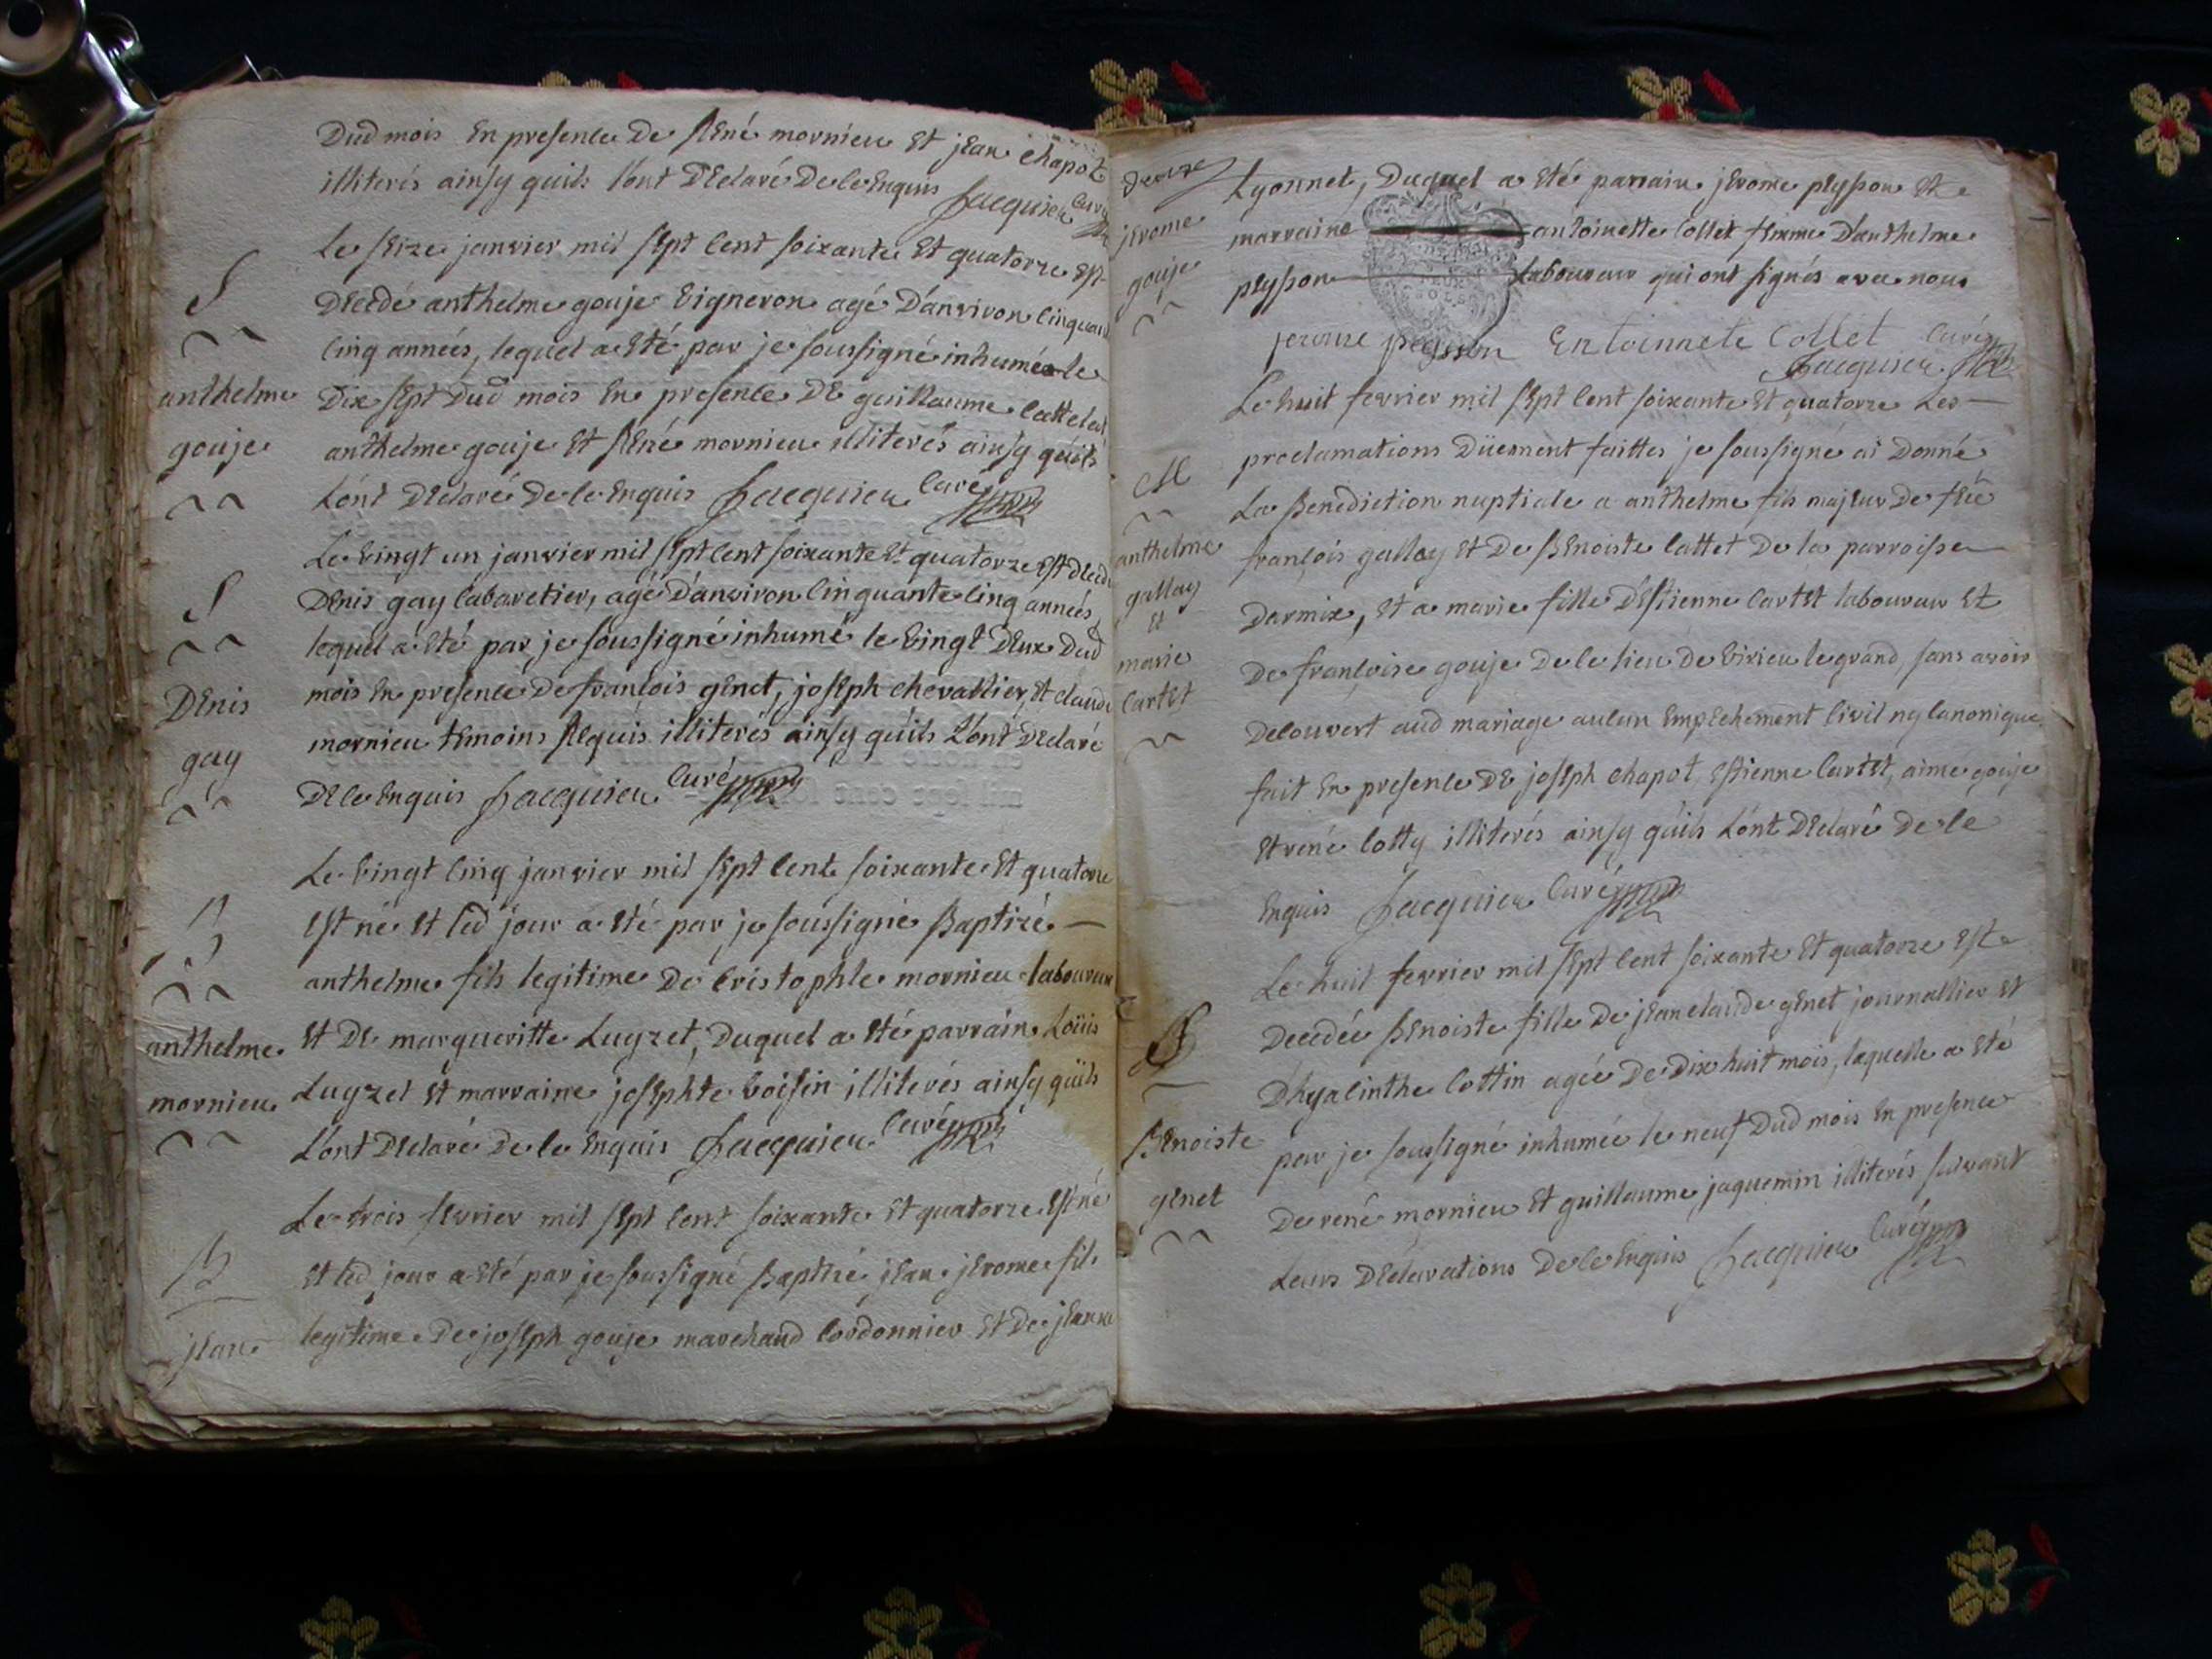 Dud mois En presence De René mornieu Et jEan chapot
illiterés ainsy quils lont DEclaré De ce Enquis Jacquier Curé
Le sEize janvier mil sEpt cent soixante Et quatorze Est
DEcedé anthelme gouje vigneron agé D'anviron cinquante
cinq années, lequel a Eté par je soussigné inhumé le
Dix sEpt Dud mois En presence DE guillaume cattelat
anthelme gouje Et REné mornieu illiterés ainsy quils
L'ont DEclaré De ce Enquis Jacquier Curé
S
anthelme
gouje
Le vingt un janvier mil sEpt cent soixante Et quatorze Est DEcedé
DEnis gay cabaretier, agé D'anviron cinquante cinq années,
lequel a Eté par je soussigné inhumé le vingt DEux Dud
mois En presence De francois gEnet, josEph chevallier, Et claude
mornieu tEmoins REquis illiterés ainsy quils L'ont DEclaré
DE ce Enquis Jacquier Curé
S
DEnis
gay
Le vingt cinq janvier mil sEpt cent soixante Et quatorze
Est né Et led jour a Eté par je soussigné Baptizé
anthelme fils legitime De cristophle mornieu laboureur
Et DE margueritte Luyzet, Duquel a Eté parrain Loüis
Luyzet Et marraine josEphte voisin illiterés ainsy quils
L'ont DEclaré De ce Enquis Jacquier Curé
B
anthelme
mornieu
Le trois fevrier mil sEpt cent soixante Et quatorze Est né
Et led jour a Eté par je soussigné Baptizé jEan jErome fils
legitime De josEph gouje marchand cordonnier Et De jEanne
B
jEan
jErome
gouje
Lyonnet, Duquel a Eté parrain jErome plysson Et
marraine antoinette collet femme D'anthelme
plysson laboureur qui ont signés avec nous
jerome plysson Entoinnete Collet Curé
Jacquier
Le huit fevrier mil sEpt cent soixante Et quatorze Les
proclamations Düement faittes je soussigné ai Donné
La BEnediction nuptiale a anthelme fils majEur De feu
françois gallay Et De BEnoiste cattet De la parroisse
Darmix, Et a marie fille D'Estienne cartEt laboureur Et
De françoise gouje De ce lieu De virieu le grand, sans avoir
Decouvert aud mariage aucun EmpEchement civil ny canonique,
fait En presence DE josEph chapot, Estienne cartEt, aime gouje
Et rené cotty illiterés ainsy quils L'ont DEclaré De ce
Enquis Jacquier Curé
M
anthelme
gallay
Et
marie
cartEt
Le huit fevrier mil sEpt cent soixante Et quatorze Est
DEcedée BEnoiste fille De jEan claude gEnet journallier Et
D'hyacinthe cottin agée De Dix huit mois, laquelle a Eté
par je soussigné inhumée le neuf Dud mois En presence
De rené mornieu Et guillaume jaquemin illiterés suivant
Leurs DEclarations De ce Enquis Jacquier Curé
BEnoiste
gEnet